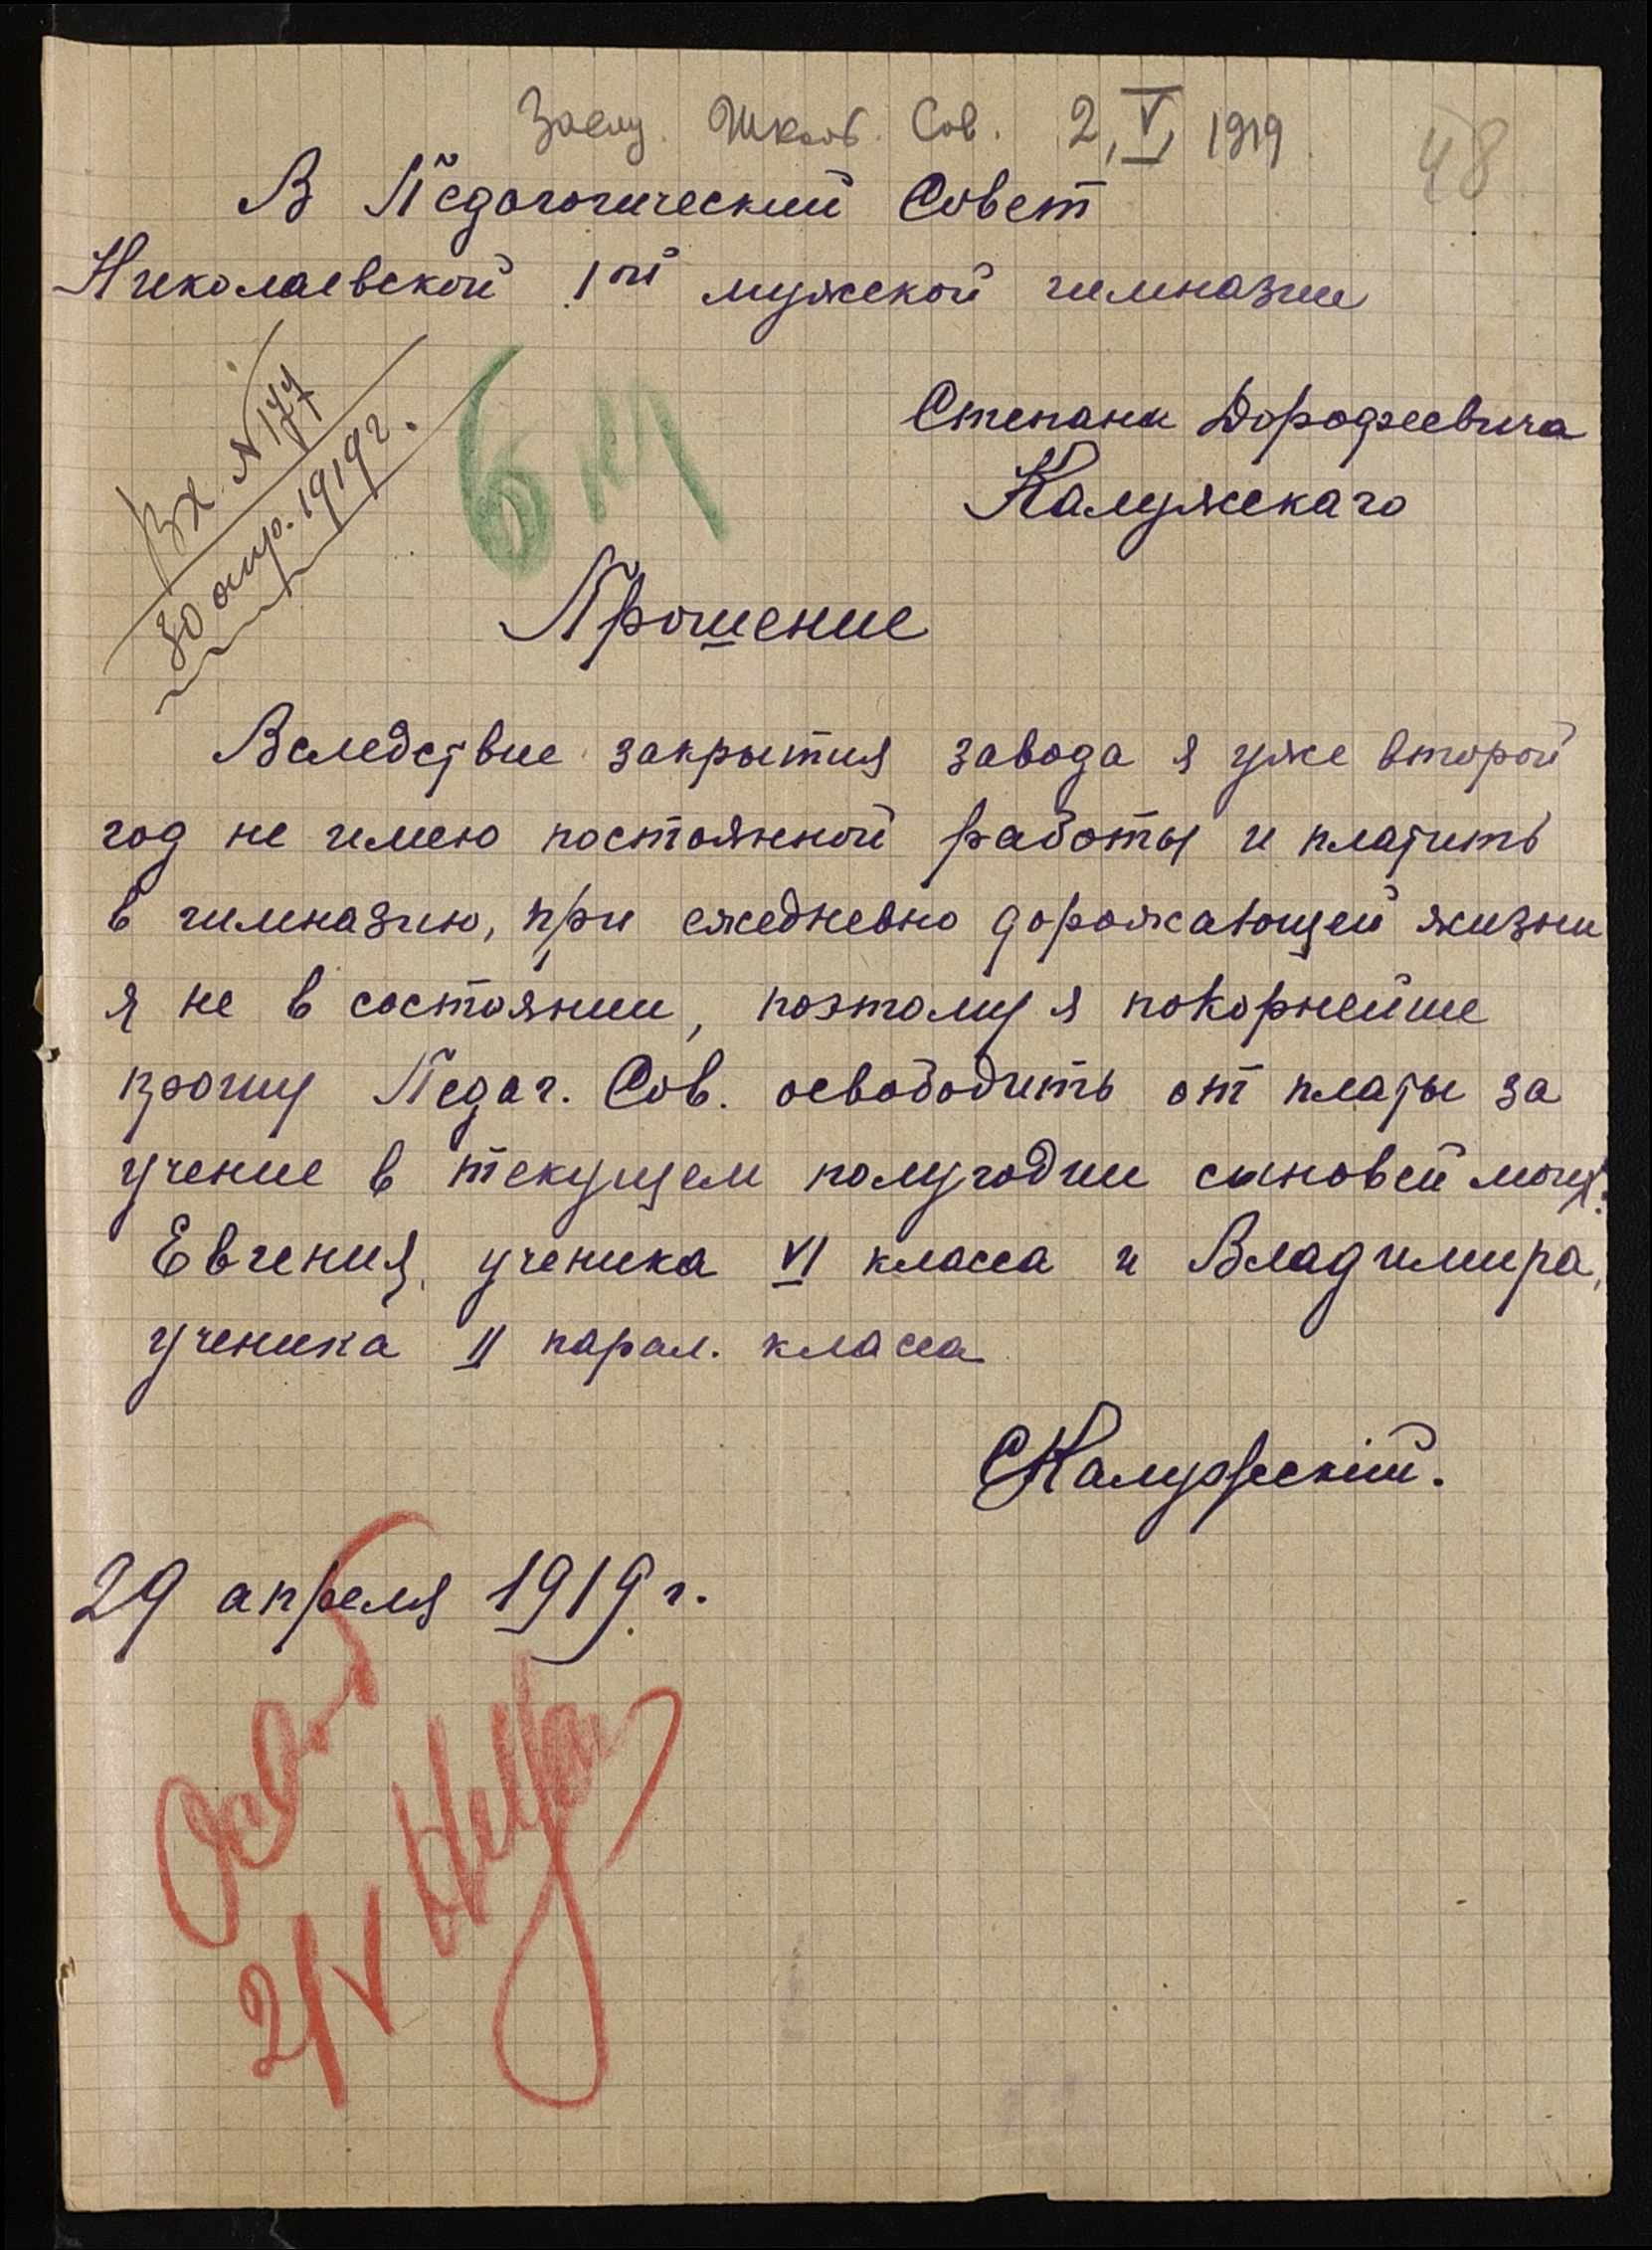 Засл. Школ. Сов. 2, V, 1919
48
В Педагогический Совет
Николаевской 1ой мужской гимназии
Вх. N 177
30 апр. 1919 г.
Степана Дорофеевича
Калужскаго
Прошение
Вследствие закрытия завода я уже второй
год не имею постоянной работы и платить
в гимназию, при ежедневно дорожающей жизни
я не в состоянии, поэтому я покорнейше
прошу Педаг. Сов. освободить от платы за
учение в текущем полугодии сыновей моих:
Евгения, ученика VI класса и Владимира,
ученика II парал. класса
СКалужскій.
29 апреля 1919 г.
2/V